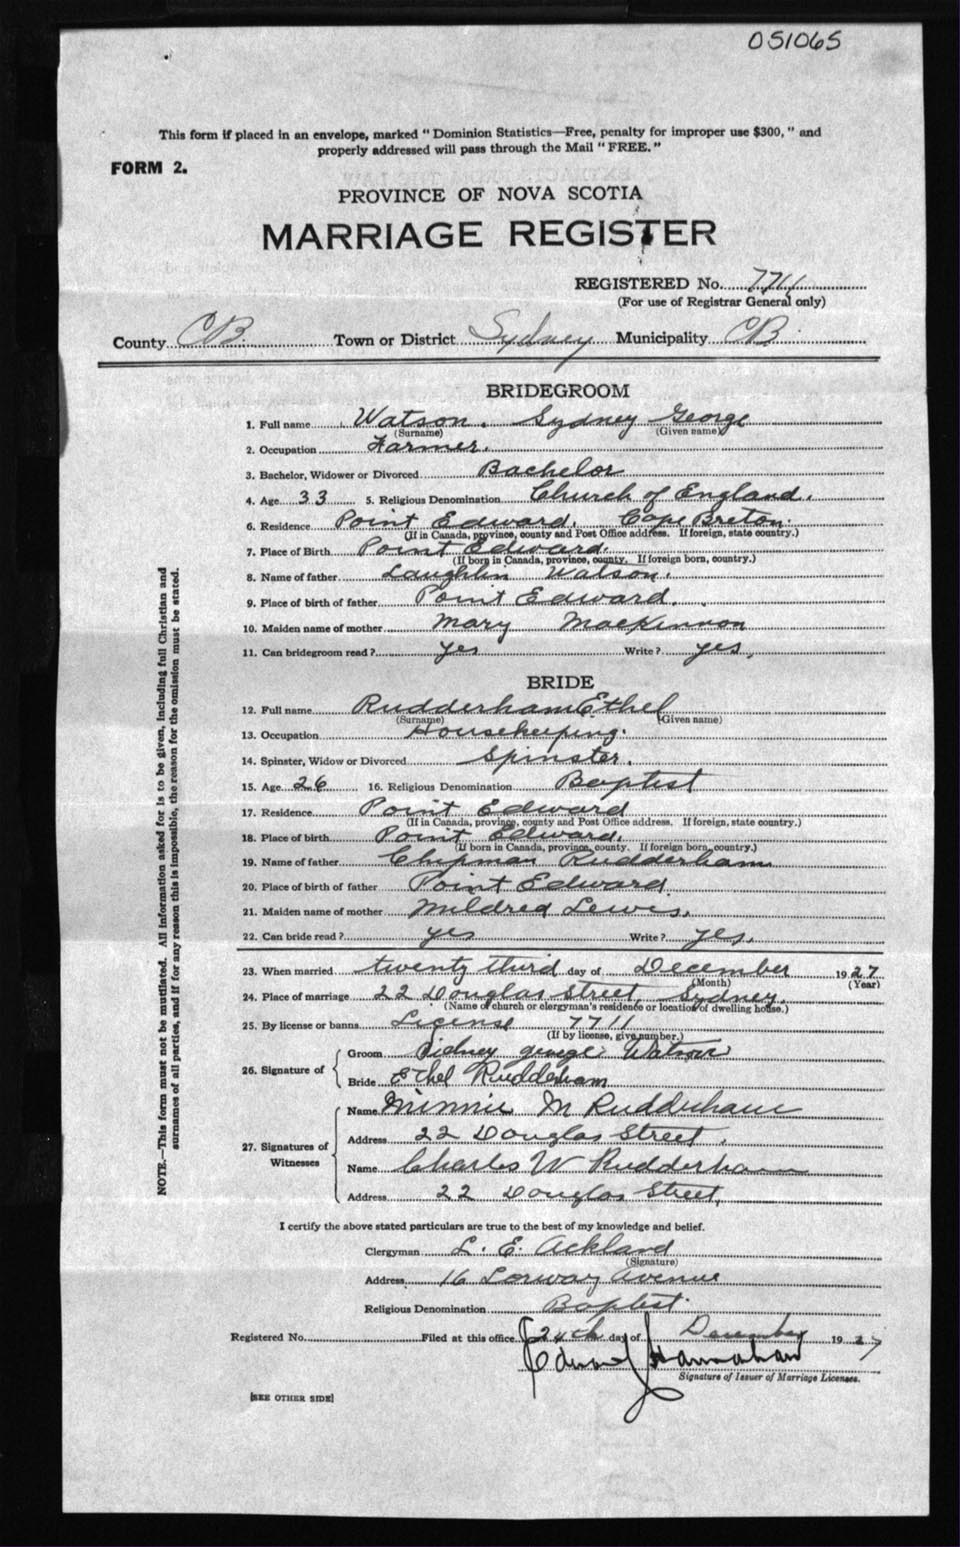 051065
This form if placed in an envelope, marked "Dominion Statistics—Free, penalty for improper use $300," and
properly addressed will pass through the Mail "FREE."
FORM 2.
PROVINCE OF NOVA SCOTIA
MARRIAGE REGISTER
REGISTERED No. 7711
(For use of Registrar General only)
County C.B. Town or District Sydney Municipality C.B.
BRIDEGROOM
1. Full name Watson. Sydney George
(Surname) (Given name)
2. Occupation Farmer.
3. Bachelor, Widower or Divorced Bachelor
4. Age 33 5. Religious Denomination Church of England.
6. Residence Point Edward, Cape Breton.
(If in Canada, province, county and Post Office address. If foreign, state country.)
7. Place of Birth Point Edward.
(If born in Canada, province, county. If foreign born, country.)
8. Name of father Laughlin Watson.
9. Place of birth of father Point Edward.
10. Maiden name of mother Mary MacKinnon
11. Can bridegroom read? yes Write? yes,
BRIDE
12. Full name Rudderham Ethel
(Surname) (Given name)
13. Occupation Housekeeping.
14. Spinster, Widow or Divorced Spinster.
15. Age 26 16. Religious Denomination Baptist
17. Residence Point Edward
(If in Canada, province, county and Post Office address. If foreign, state country.)
18. Place of birth Point Edward.
(If born in Canada, province, county. If foreign born, country.)
19. Name of father Chipman Rudderham
20. Place of birth of father Point Edward
21. Maiden name of mother Mildred Lewis.
22. Can bride read? yes Write? yes.
23. When married twenty third day of December 1927
(Month) (Year)
24. Place of marriage 22 Douglas Street, Sydney.
(Name of church or clergyman's residence or location of dwelling house.)
25. By license or banns License 7711
(If by license, give number.)
26. Signature of
Groom Sidney George Watson
Bride Ethel Rudderham
27. Signatures of Witnesses
Name Minnie M Rudderham
Address 22 Douglas Street.
Name Charles W Rudderham
Address 22 Douglas Street,
I certify the above stated particulars are true to the best of my knowledge and belief.
Clergyman L. E. Ackland
(Signature)
Address 16 Lorway Avenue
Religious Denomination Baptist.
Registered No. Filed at this office 24th day of December 1927
Signature of Issuer of Marriage Licenses.
[SEE OTHER SIDE]
NOTE.—This form must not be mutilated. All information asked for is to be given, including full Christian and
surnames of all parties, and if for any reason this is impossible, the reason for the omission must be stated.